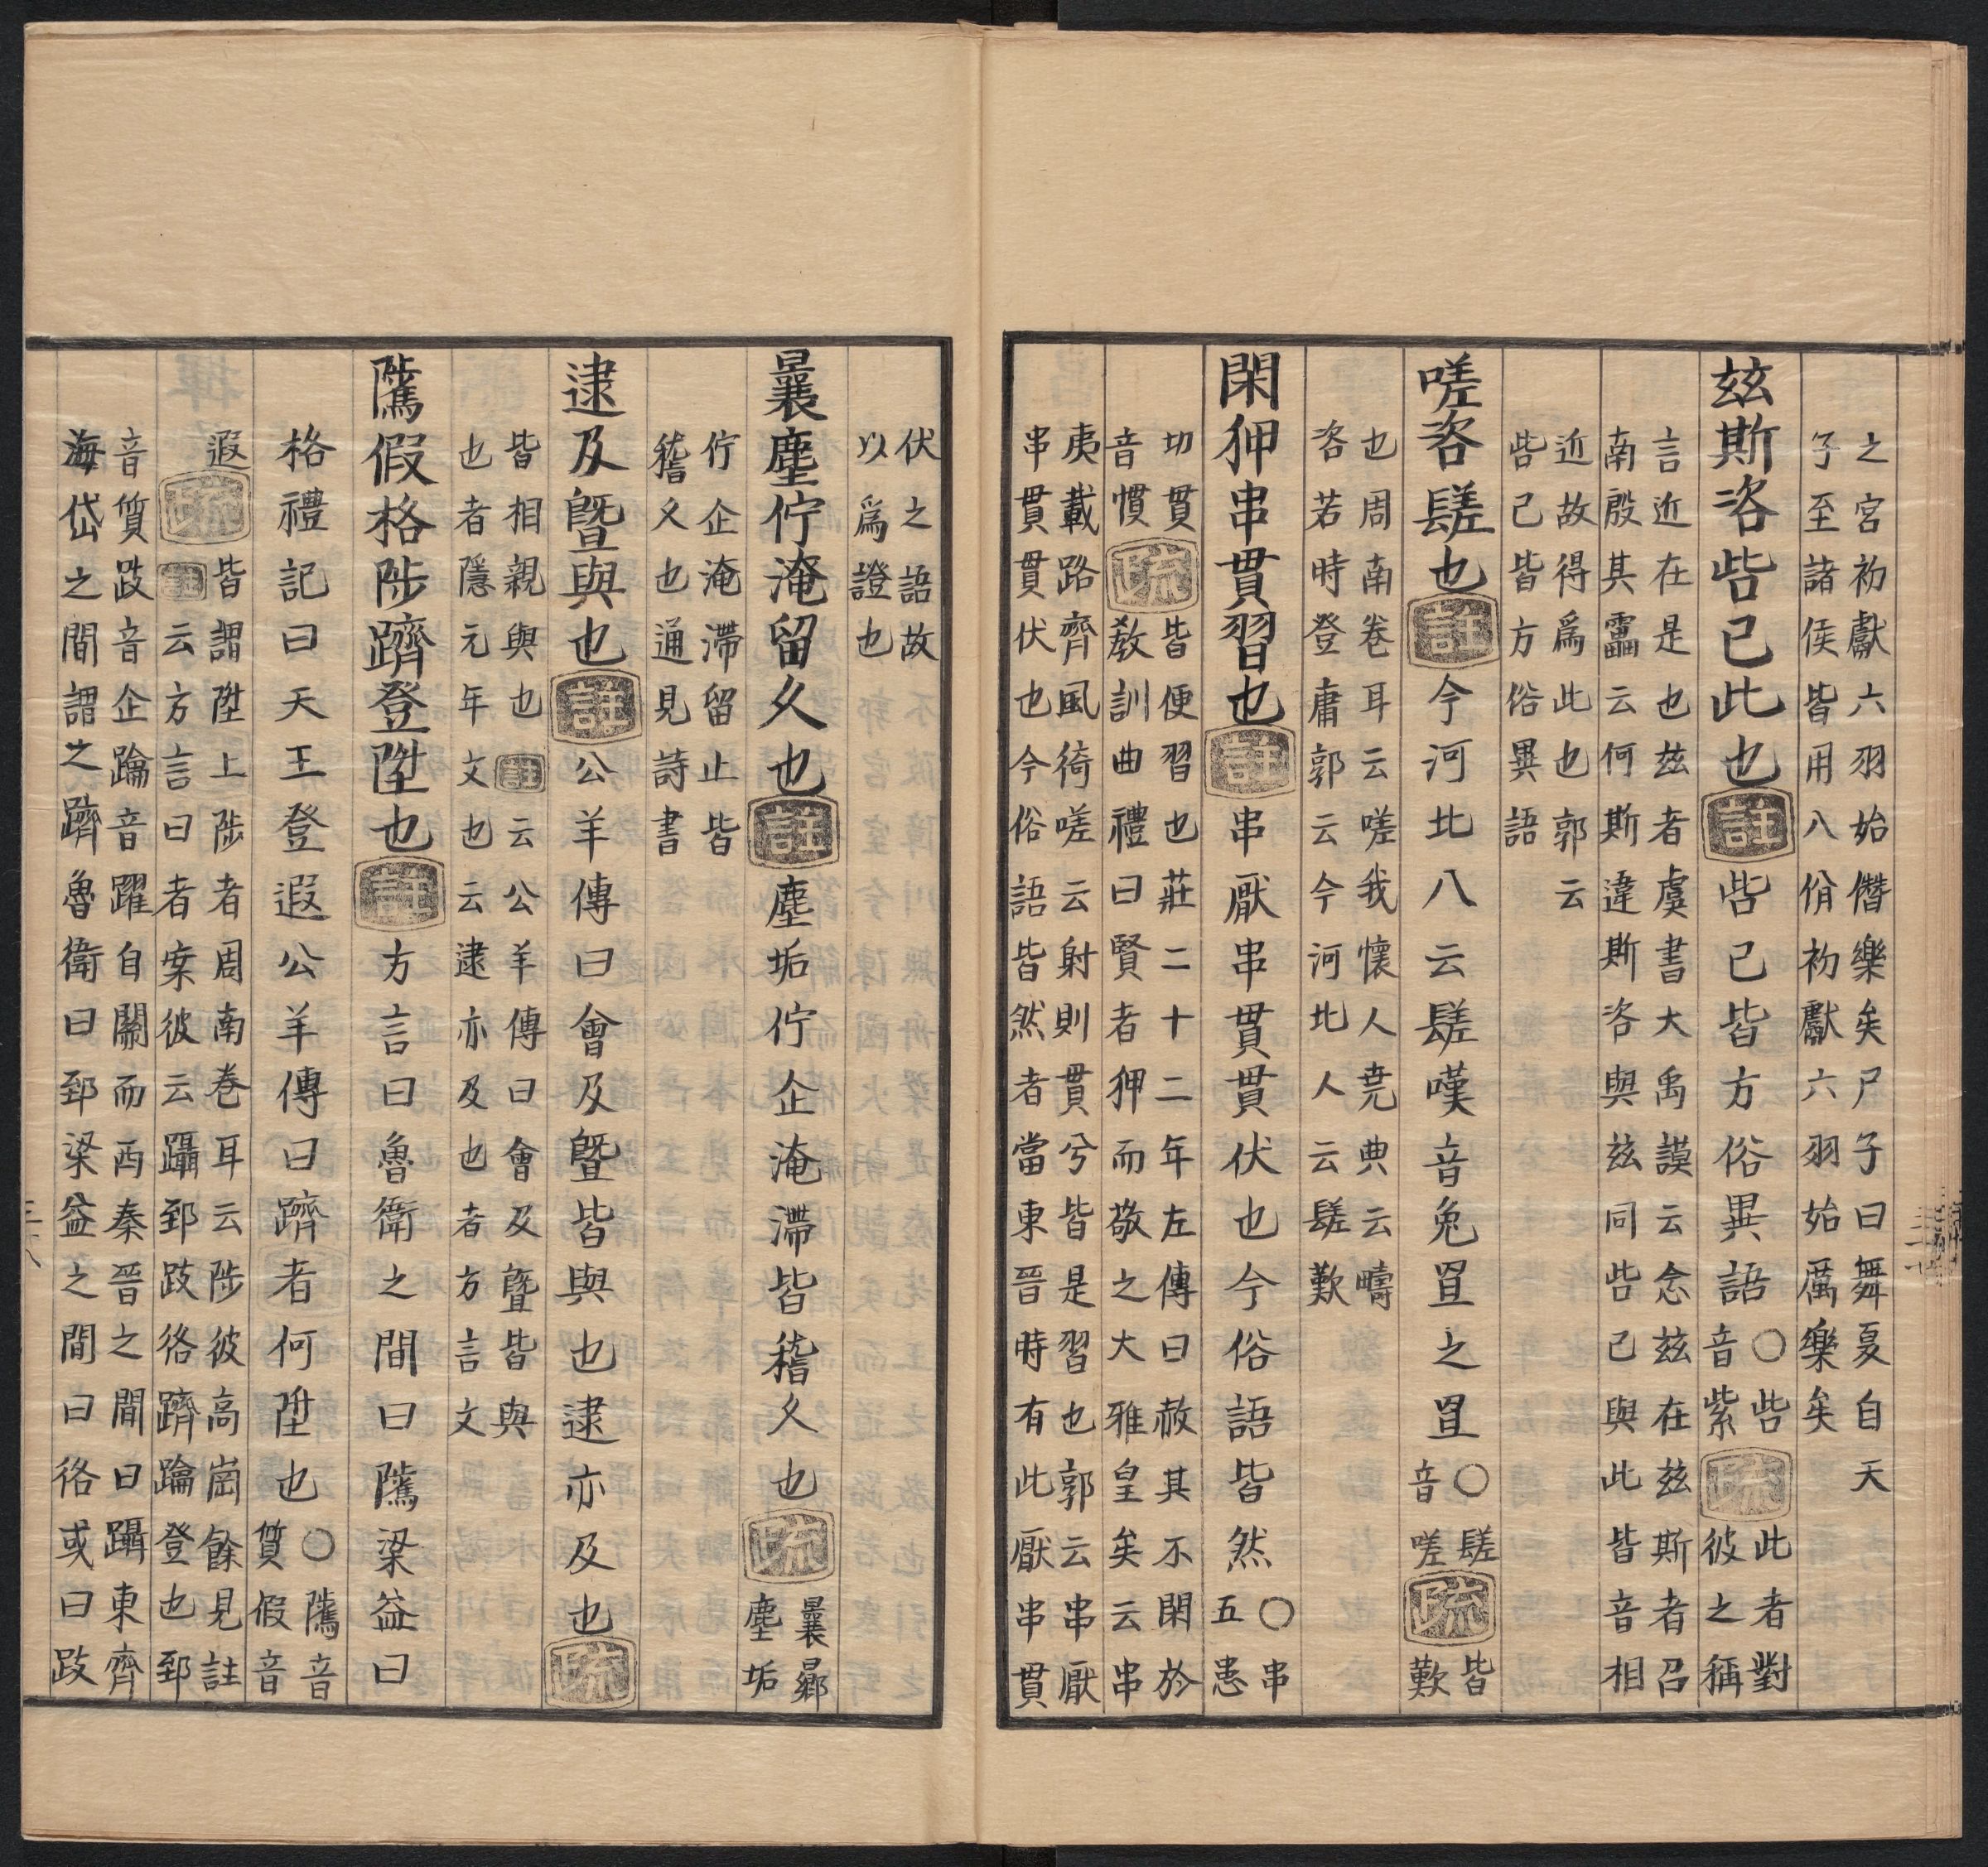 之宮初獻六羽始僭樂矣尸子曰舞夏自天
子至諸侯皆用八佾初獻六羽始厲樂矣
茲斯咨呰已此也註呰已皆方俗異語○呰音紫疏此者對彼之稱
言近在是也茲者虞書大禹謨云念茲在茲斯者召
南殷其靁云何斯違斯咨與茲同呰已與此皆音相
近故得爲此也郭云
呰已皆方俗異語
嗟咨䰈也註今河北八云䰈嘆音兔罝之罝○䰈音嗟疏皆歎
也周南卷耳云嗟我懷人堯典云疇
咨若時登庸郭云今河北人云䰈歎
閑狎串貫習也註串厭串貫貫伏也今俗語皆然○串五患
切貫音慣疏皆便習也莊二十二年左傳曰赦其不閑於
敎訓曲禮曰賢者狎而敬之大雅皇矣云串
夷載路齊風猗嗟云射則貫兮皆是習也郭云串厭
串貫貫伏也今俗語皆然者當東晉時有此厭串貫
伏之語故
以爲證也
曩塵佇淹留久也註塵垢佇企淹滯皆稽久也疏曩曏塵垢
佇企淹滯留止皆
稽久也通見詩書
逮及曁與也註公羊傳曰會及曁皆與也逮亦及也疏
皆相親與也註云公羊傳曰會及曁皆與
也者隱元年文也云逮亦及也者方言文
騭假格陟躋登陞也註方言曰魯衛之間曰騭梁益曰
格禮記曰天王登遐公羊傳曰躋者何陞也○騭音質假音
遐疏皆謂陞上陟者周南卷耳云陟彼高崗餘見註
註云方言曰者案彼云躡郅跂佫躋踚登也郅
音質跂音企踚音躍自關而西秦晉之間曰躡東齊
海岱之間謂之躋魯衛曰郅梁益之間曰佫或曰跂